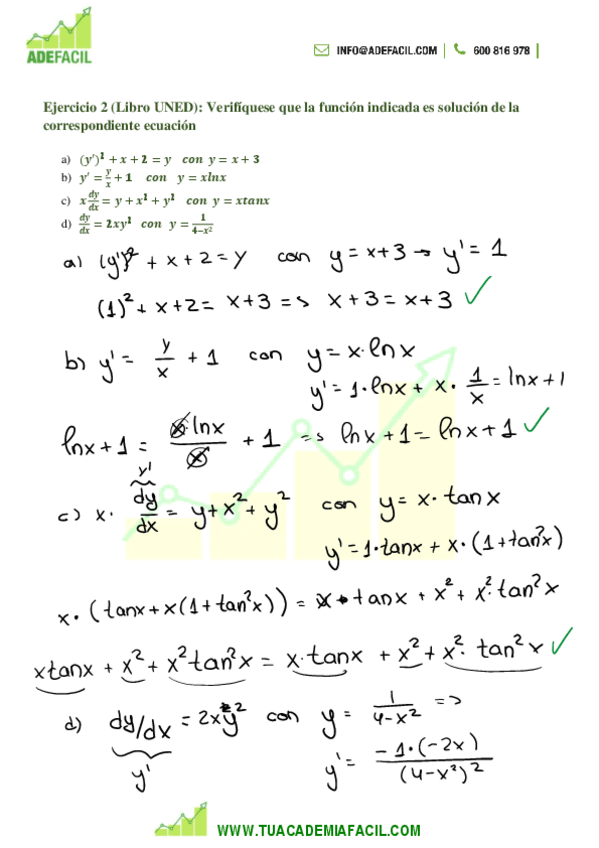 ADEFACIL
INFO@ADEFACIL.COM | 600 816 978 |
Ejercicio 2 (Libro UNED): Verifíquese que la función indicada es solución de la
correspondiente ecuación
a) (y')² + x + 2 = y con y = x + 3
b) y' = y/x + 1 con y = xlnx
c) x dy/dx = y + x² + y² con y = xtanx
d) dy/dx = 2xy² con y = 1/(4−x²)
a) (y')² + x + 2 = y con y = x+3 → y' = 1
(1)² + x + 2 = x+3 => x+3 = x+3 ✓
b) y' = y/x + 1 con y = x·lnx
y' = 1·lnx + x · 1/x = lnx + 1
lnx + 1 = x·lnx/x + 1 => lnx + 1 = lnx + 1 ✓
y'
c) x · dy/dx = y + x² + y² con y = x·tanx
y' = 1·tanx + x·(1+tan²x)
x·(tanx + x(1+tan²x)) = x·tanx + x² + x²·tan²x
xtanx + x² + x²tan²x = x·tanx + x² + x²·tan²x ✓
d) dy/dx = 2xy² con y = 1/(4−x²) =>
y' y' = −1·(−2x)/(4−x²)²
WWW.TUACADEMIAFACIL.COM